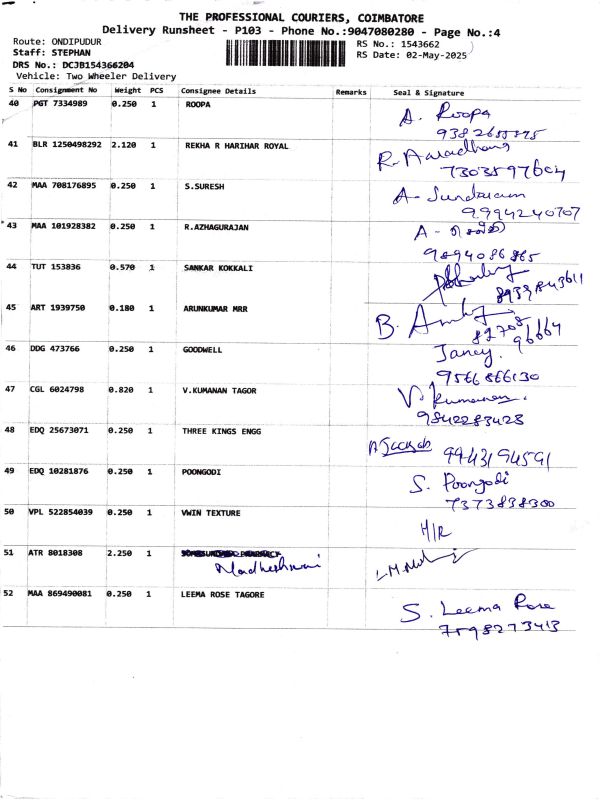 THE PROFESSIONAL COURIERS, COIMBATORE
Delivery Runsheet - P103 - Phone No.:9047080280 - Page No.:4
Route: ONDIPUDUR RS No.: 1543662
Staff: STEPHAN RS Date: 02-May-2025
DRS No.: DCJB154366204
Vehicle: Two Wheeler Delivery
S No Consignment No Weight PCS Consignee Details Remarks Seal & Signature
40 PGT 7334989 0.250 1 ROOPA A. Roopa
41 BLR 1250498292 2.120 1 REKHA R HARIHAR ROYAL R. Aaradhana
7303597604
42 MAA 708176895 0.250 1 S.SURESH A- Sundaram
9994240707
43 MAA 101928382 0.250 1 R.AZHAGURAJAN A -
9894086865
44 TUT 153836 0.570 1 SANKAR KOKKALI
8939843611
45 ART 1939750 0.180 1 ARUNKUMAR MRR B.
82708
96664
46 DDG 473766 0.250 1 GOODWELL Jancy.
9566866130
47 CGL 6024798 0.820 1 V.KUMANAN TAGOR V. Kumanan.
9842283428
48 EDQ 25673071 0.250 1 THREE KINGS ENGG
9943194591
49 EDQ 10281876 0.250 1 POONGODI S. Poongodi
7373838300
50 VPL 522854039 0.250 1 VWIN TEXTURE H/R
51 ATR 8018308 2.250 1
Madheshwari
52 MAA 869490081 0.250 1 LEEMA ROSE TAGORE S. Leema Rose
7598273413